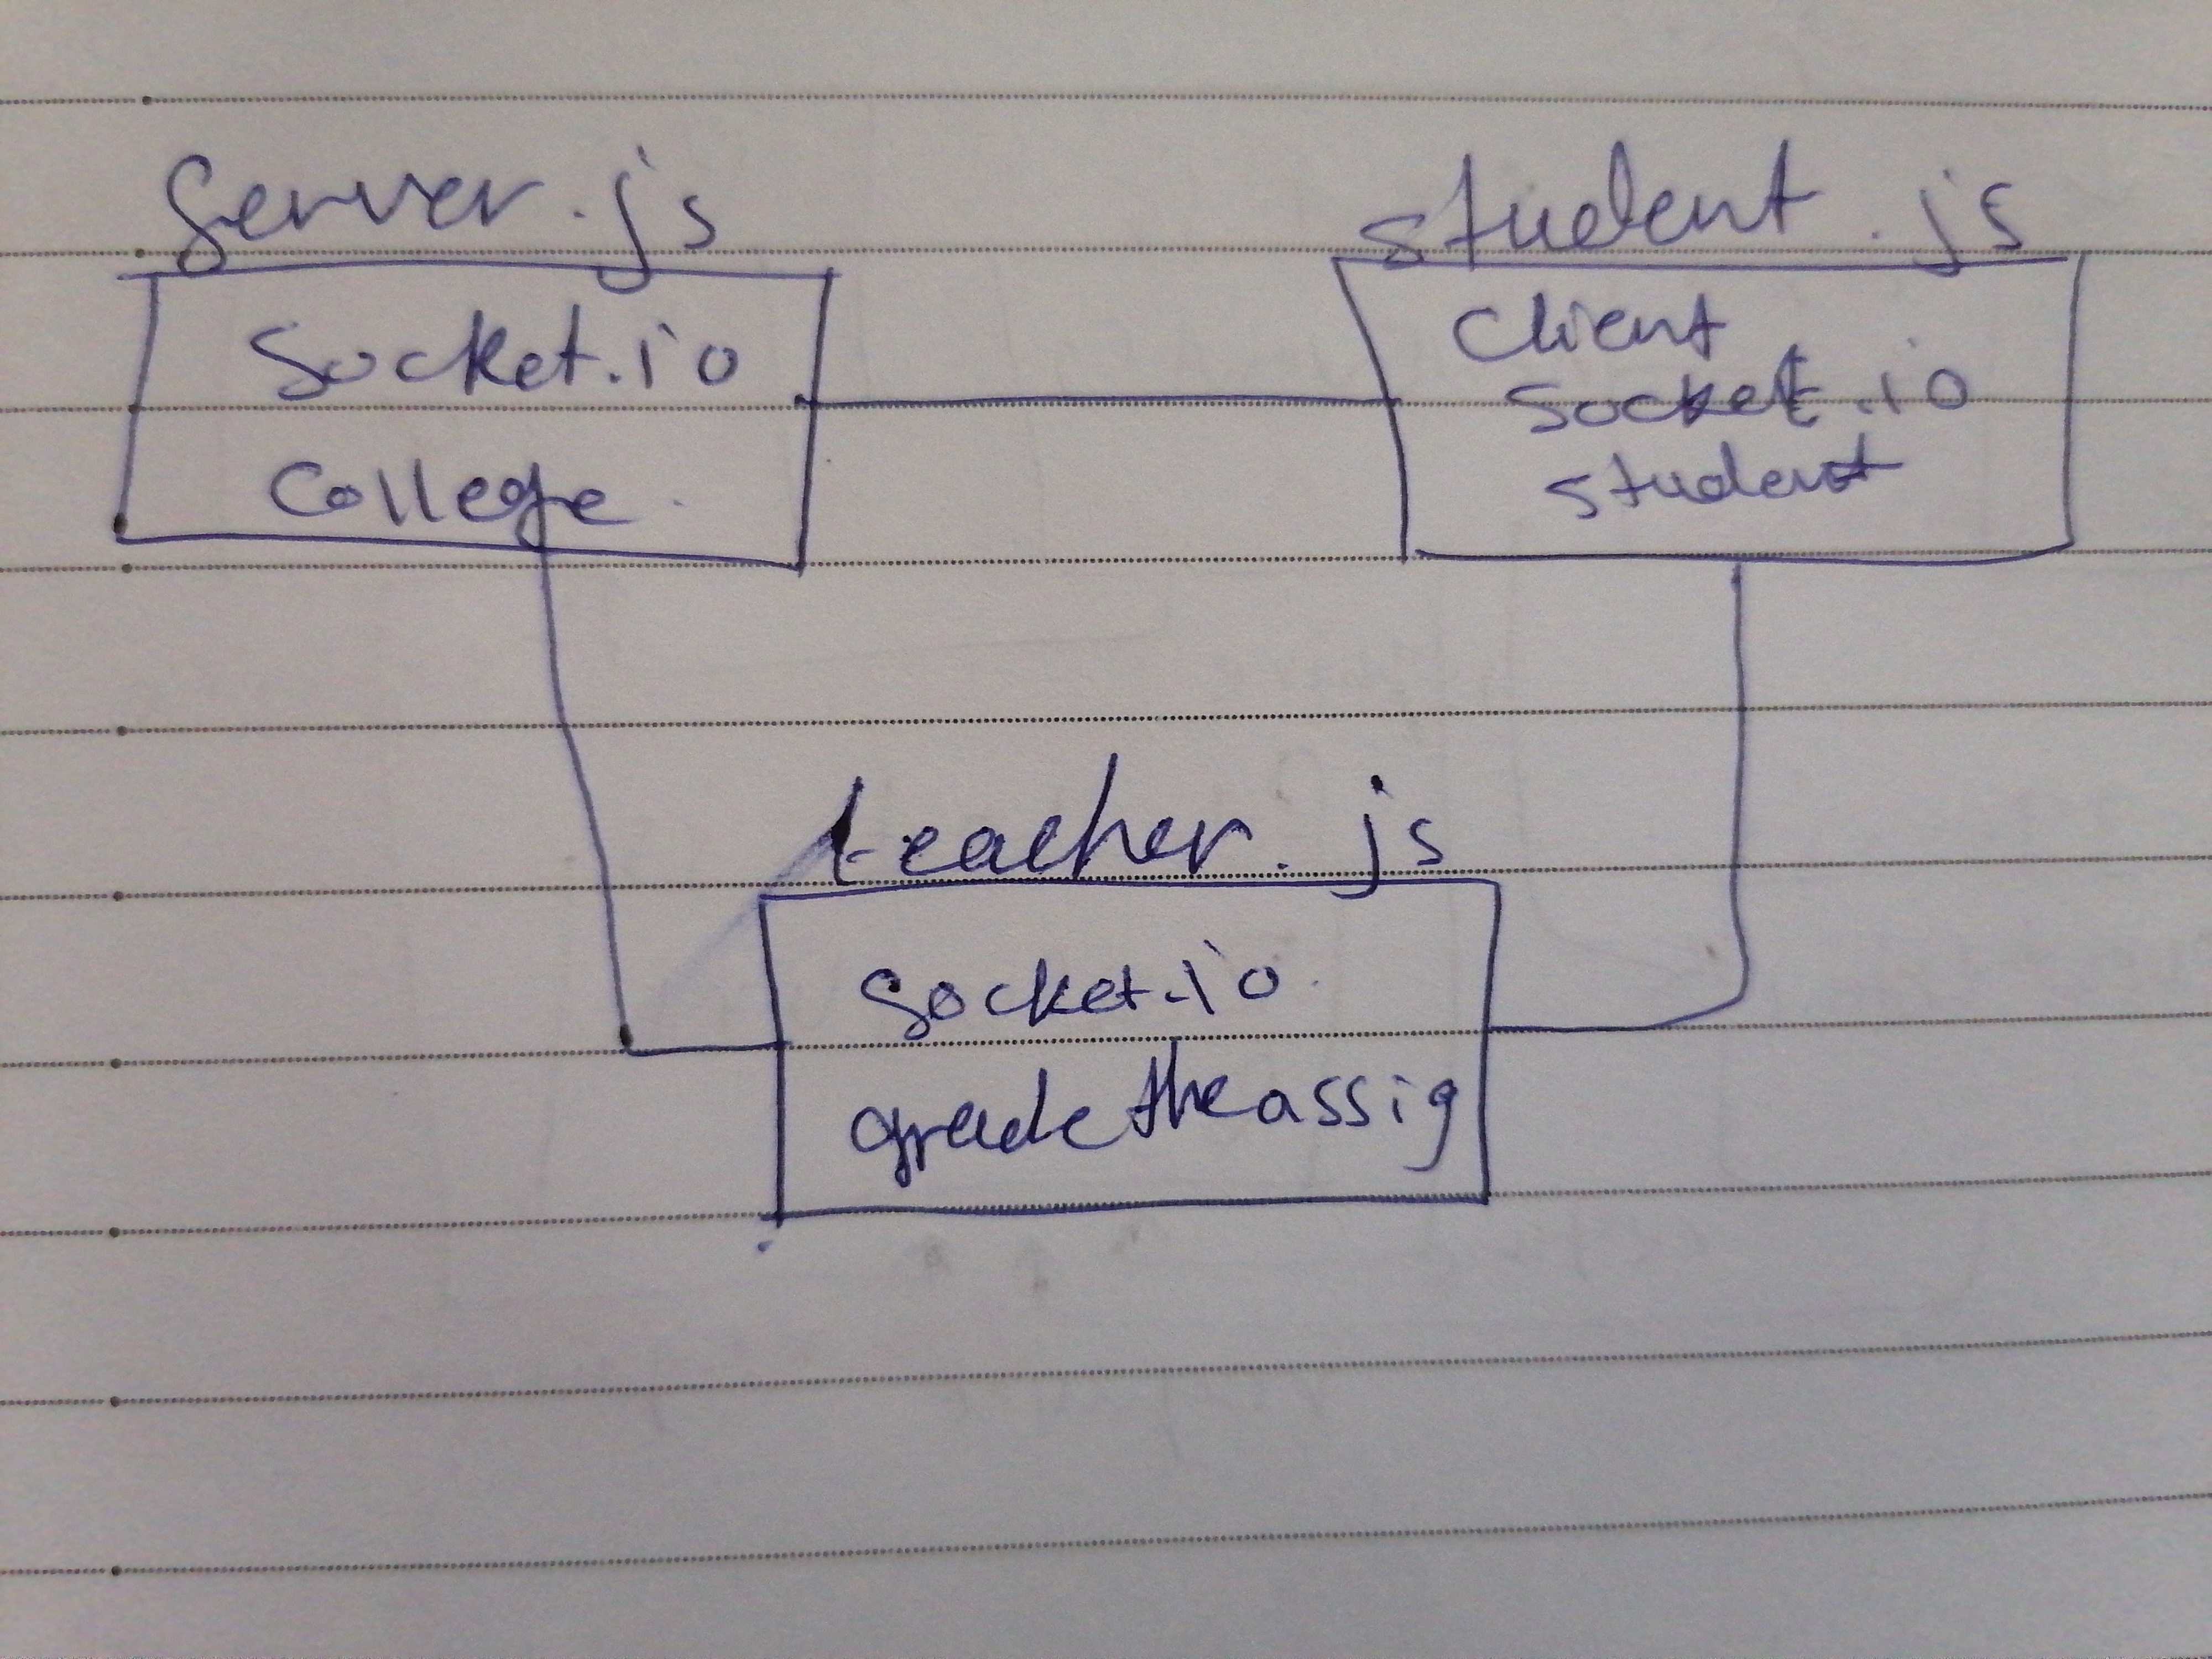 Server.js
Socket.io
College.
student.js
Client
socket.io
student
teacher.js
Socket.io
grade the assig